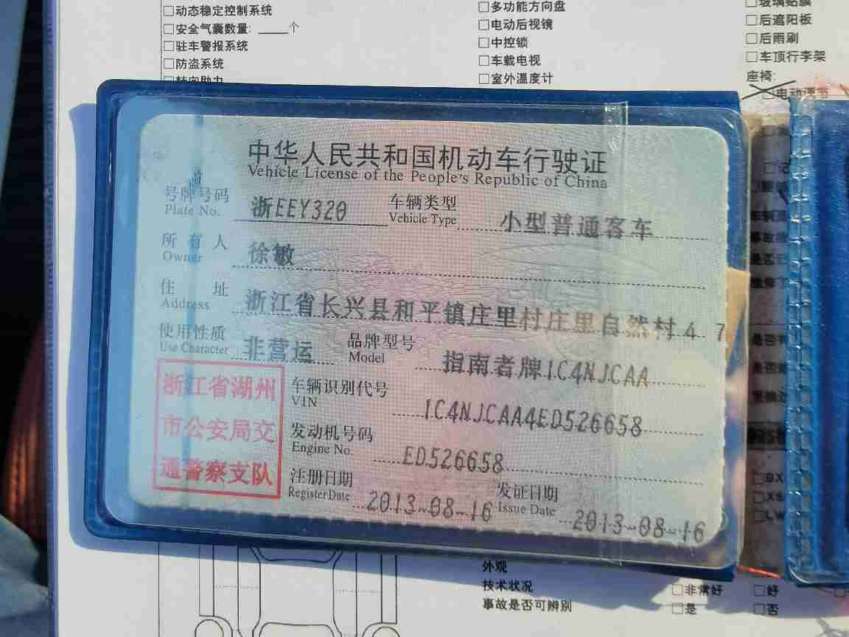 □动态稳定控制系统
□安全气囊数量: ____个
□驻车警报系统
□防盗系统
□转向助力
□多功能方向盘
□电动后视镜
□中控锁
□车载电视
□室外温度计
□玻璃贴膜
□后遮阳板
□后雨刷
□车顶行李架
座椅:
中华人民共和国机动车行驶证
Vehicle License of the People's Republic of China
号牌号码 浙EEY320 车辆类型 小型普通客车
Plate No. Vehicle Type
所有人 徐敏
Owner
住址 浙江省长兴县和平镇庄里村庄里自然村47
Address
使用性质 非营运 品牌型号 指南者牌1C4NJCAA
Use Character Model
浙江省湖州
市公安局交
通警察支队
车辆识别代号 1C4NJCAA4ED526658
VIN
发动机号码 ED526658
Engine No.
注册日期 2013-08-16 发证日期 2013-08-16
Register Date Issue Date
外观
技术状况 □非常好 □好
事故是否可辨别 □是 □否